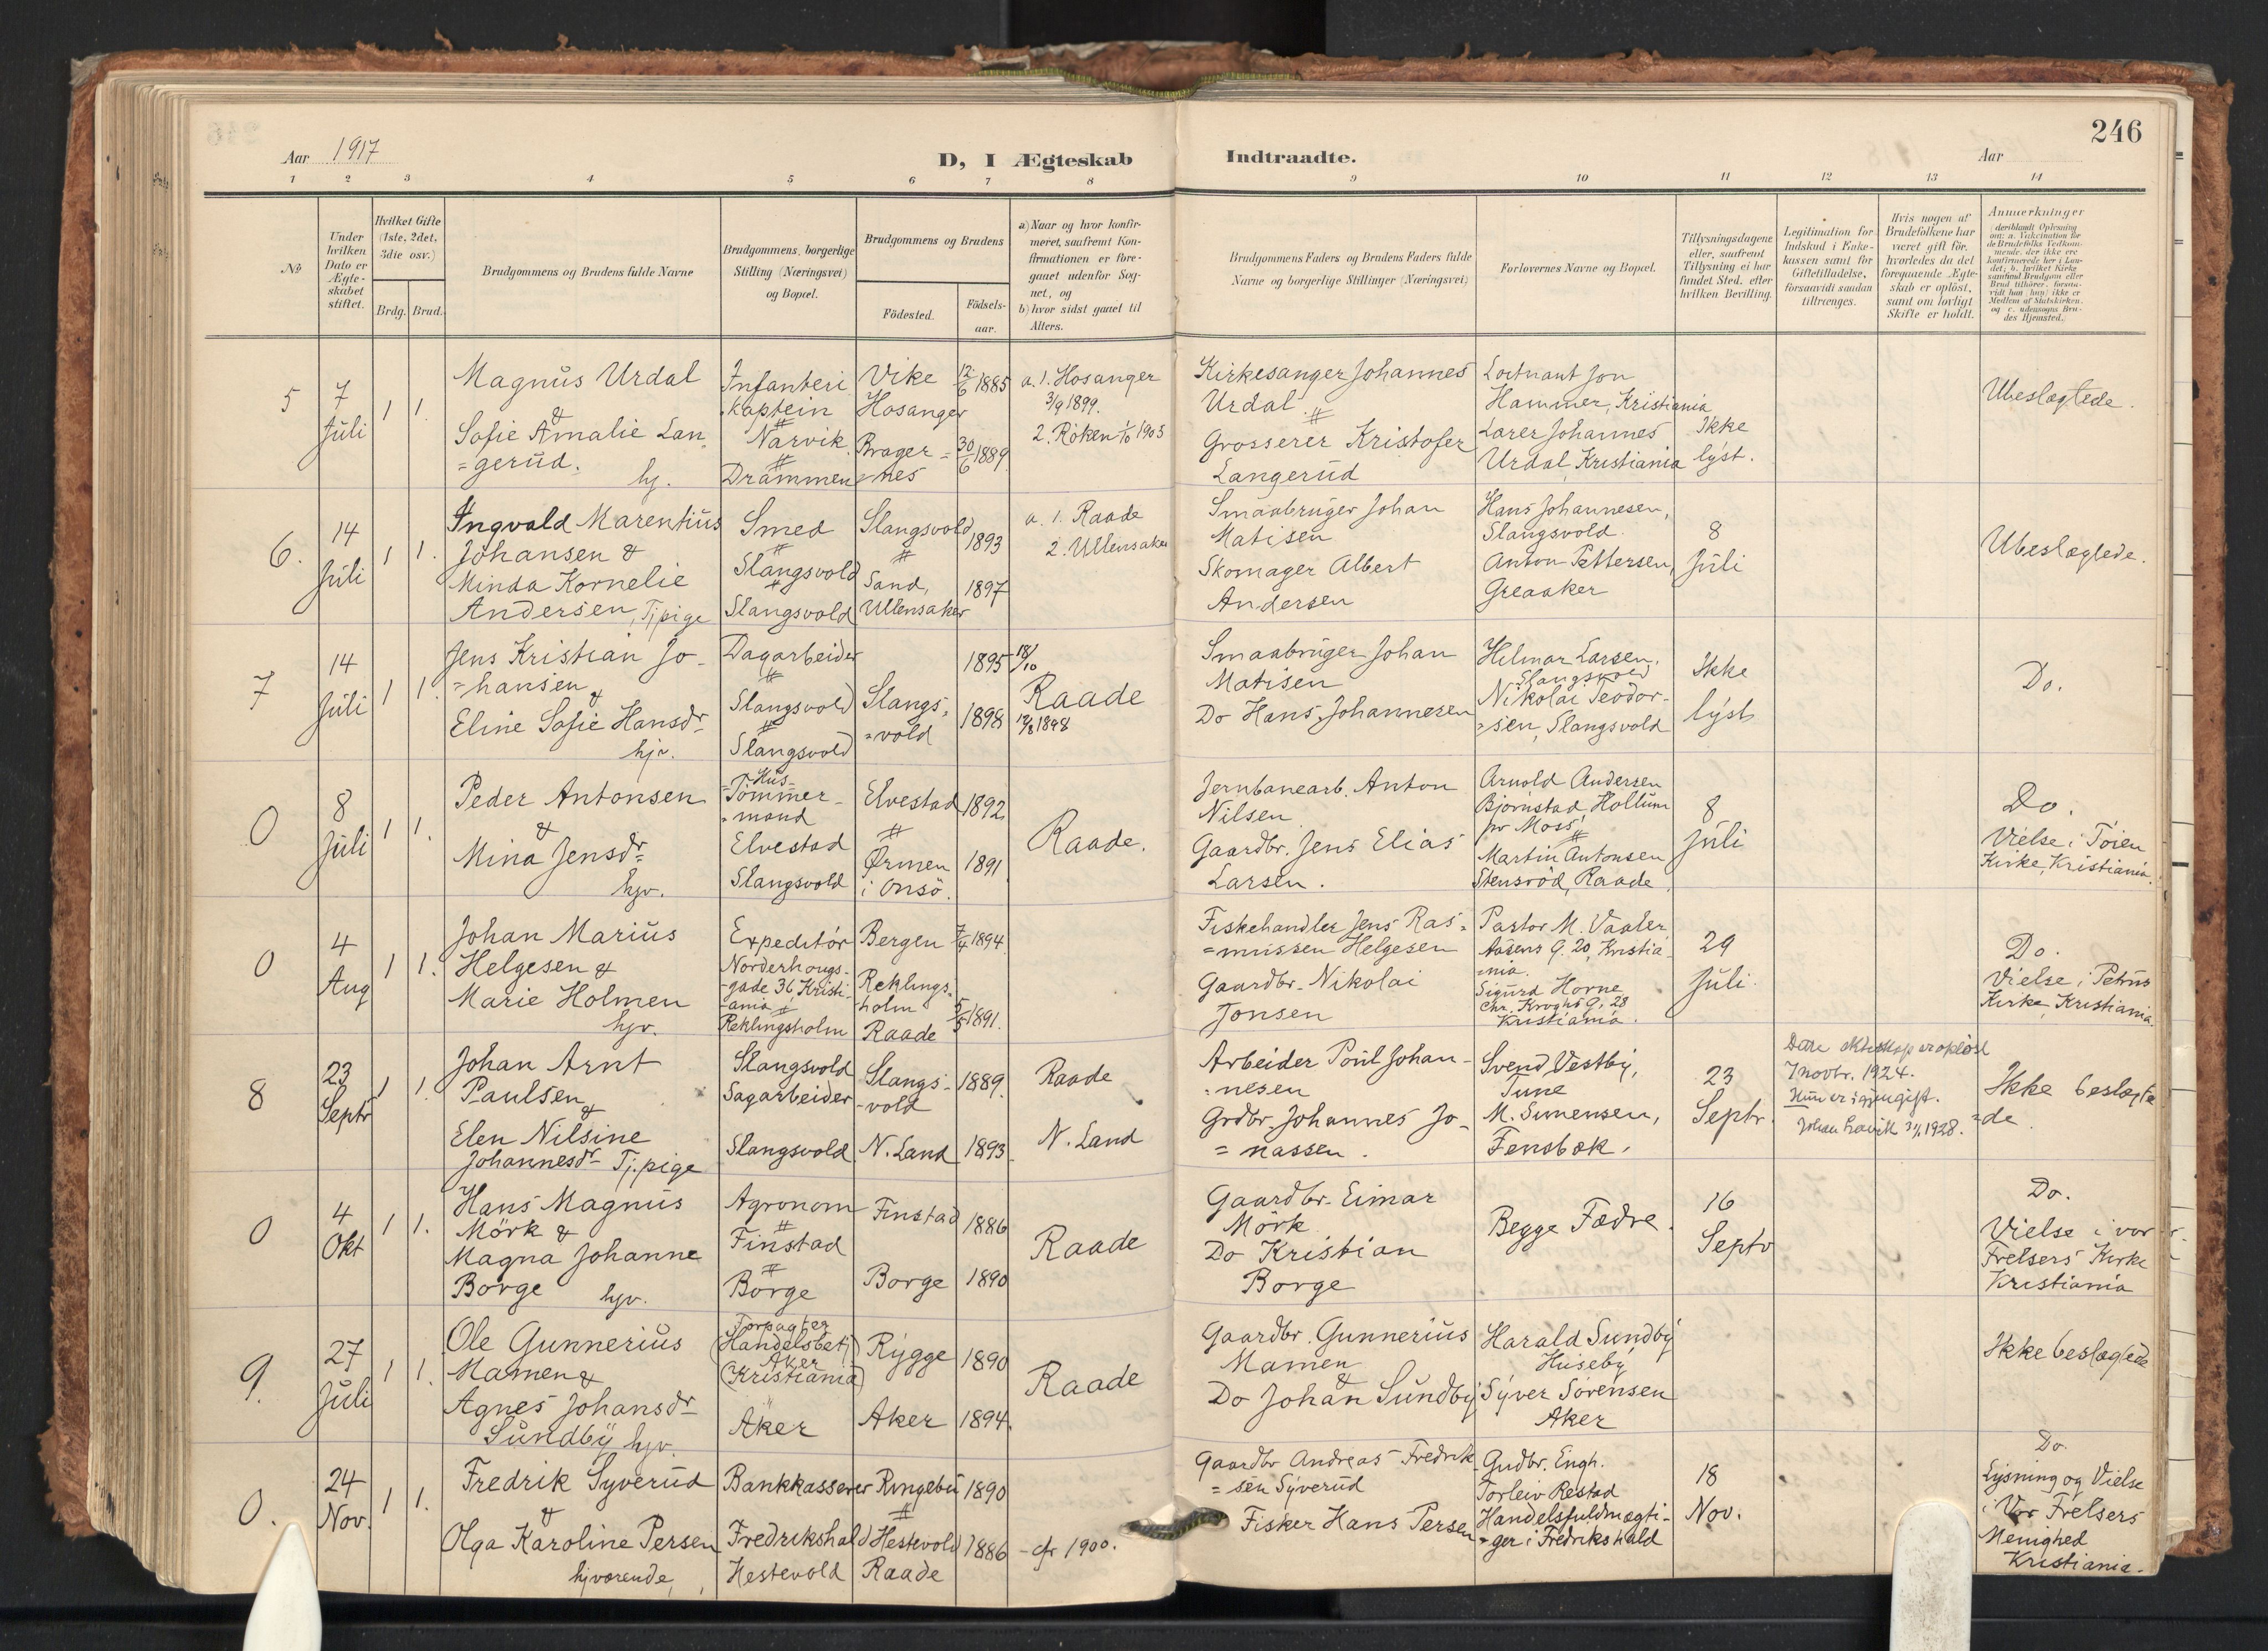 246
Aar 1917
D, I Ægteskab Indtraadte.
Aar
1 2 3 4 5 6 7 8 9 10 11 12 13 14
No
Under
hvilken
Dato er
Ægte-
skabet
stiftet.
Hvilket Gifte
(1ste, 2det,
3die osv.)
Brdg. Brud.
Brudgommens og Brudens fulde Navne
Brudgommens, borgerlige
Stilling (Næringsvei)
og Bopæl.
Brudgommens og Brudens
Födested.
Födsels-
aar.
a) Naar og hvor konfir-
meret, saafremt Kon-
firmationen er fore-
gaaet udenfor Sog-
net, og
b) hvor sidst gaaet til
Alters.
Brudgommens Faders og Brudens Faders fulde
Navne og borgerlige Stillinger (Næringsvei)
Forlovernes Navne og Bopæl.
Tillysningsdagene
eller, saafremt
Tillysning ei har
fundet Sted, efter
hvilken Bevilling.
Legitimation for
Indskud i Enke-
kassen samt for
Giftetilladelse,
forsaavidt saadan
tiltrænges.
Hvis nogen af
Brudefolkene har
været gift för,
hvorledes da det
foregaaende Ægte-
skab er oplöst,
samt om lovligt
Skifte er holdt.
Anmerkninger
(deriblandt Oplysning
om: a. Vakcination for
de Brudefolks Vedkom-
mende, der ikke ere
konfirmerede her i Lan-
det; b. hvilket Kirke-
samfund Brudgom eller
Brud tilhörer, forsaa-
vidt han (hun) ikke er
Medlem af Statskirken.
og c. udensogns Bru-
des Hjemsted.)
5
7
Juli
1 1
Magnus Urdal
&
Sofie Amalie Lan-
=gerud. hj.
Infanteri
kaptein
Narvik.
Drammen
Vike
Hosanger
Brager=
=nes
12/6 1885
30/6 1889
a. 1. Hosanger
3/9 1899.
2. Röken 1/10 1905
Kirkesanger Johannes
Urdal.
Grosserer Kristofer
Langerud
Loitnant Jon
Hammer, Kristiania
Lærer Johannes
Urdal, Kristiania
Ikke
lyst.
Ubeslægtede.
6.
14
Juli
1 1.
Ingvald Marentius
Johansen &
Minda Kornelie
Andersen, Tj.pige
Smed
Slangsvold
Slangsvold
Slangsvold
Sand,
Ullensaker
1893
1897
a. 1. Raade
2. Ullensaker
Smaabruger Johan
Matisen
Skomager Albert
Andersen
Hans Johannesen,
Slangsvold.
Anton Pettersen,
Greaaker
8
Juli
Ubeslægtede.
7
14
Juli
1 1.
Jens Kristian Jo-
=hansen
&
Eline Sofie Hansdr
hjv.
Dagarbeider
Slangsvold
Slangsvold
Slangs=
=vold
1895 18/10
1898
Raade
Smaabruger Johan
Matisen
Do Hans Johannesen
Hilmar Larsen,
Slangsvold
Nikolai Teodor-
=sen, Slangsvold
Ikke
lyst
Do.
0
8
Juli
1 1.
Peder Antonsen
&
Mina Jensdr
hjv.
Hus-
Tömmer-
mand
Elvestad
Slangsvold
Elvestad
Ørmen
i Onsö.
1892
1891
Raade.
Jernbanearb. Anton
Nilsen
Gaardbr. Jens Elias
Larsen.
Arnold Andersen
Björnstad, Hollum
pr Moss
Martin Antonsen
Stensröd, Raade
8
Juli
Do.
Vielse i Töien
Kirke, Kristiania.
0
4
Aug
1 1.
Johan Marius
Helgesen &
Marie Holmen
hjv.
Expeditör
Norderhougs-
gade 36 Kristi-
ania
Reklingsholm
Bergen
Reklings-
holm
Raade
7/4 1894
5/5 1891.
Fiskehandler Jens Ras=
=mussen Helgesen
Gaardbr. Nikolai
Jonsen
Pastor M. Vaaler
Aasens G. 20, Kristia-
nia.
Sigurd Horne
Chr. Kroghs G. 28
Kristiania.
29
Juli.
Do.
Vielse i Petrus
Kirke, Kristiania.
8
23
Septr
1 1.
Johan Arnt
Paulsen
&
Elen Nilsine
Johannesdr Tj.pige
Slangsvold
Sagarbeider
Slangsvold
Slangs-
vold
N. Land
1889.
1893
Raade
N. Land
Arbeider Poul Johan-
=nesen
Grdbr. Johannes Jo-
=nassen.
Svend Vestby,
Tune
M. Simensen,
Fensbæk.
23
Septr.
Dette ekteskap er opløst
7 novbr. 1924.
Hun er igjen gift.
1928.
Ikke beslægte
=de
0
4
Okt
1 1.
Hans Magnus
Mörk &
Magna Johanne
Borge hjv.
Agronom
Finstad
Borge
Finstad
Borge
1886
1890
Raade
Gaardbr. Eimar
Mörk
Do Kristian
Borge
Begge Fædre.
16
Septr
Do.
Vielse i vor
Frelsers Kirke
Kristiania
9.
27
Juli
1 1.
Ole Gunnerius
Mamen &
Agnes Johansdr
Sundby hjv.
Forpagter
(Handelsbetj)
Aker
(Kristiania)
Aker
Rygge
Aker
1890
1894.
Raade
Gaardbr. Gunnerius
Mamen
&
Do Johan Sundby
Harald Sundby
Huseby
Syver Sörensen
Aker
Ikke beslægtede
0.
24
Nov.
1 1.
Fredrik Syverud
&
Olga Karoline Persen
hjværende
Bankkasserer
Fredrikshald
Hestevold
Ringebu
Hestevold
Raade
1890
1886
- cfr 1900.
Gaardbr Andreas Fredrik-
=sen Syverud
Fisker Hans Persen
Gudbr. Engh.
Torleiv Restad
Handelsfuldmægti-
=ger i Fredrikshald
18
Nov.
Do.
Lysning og Vielse
i Vor Frelsers
Menighed
Kristiania.